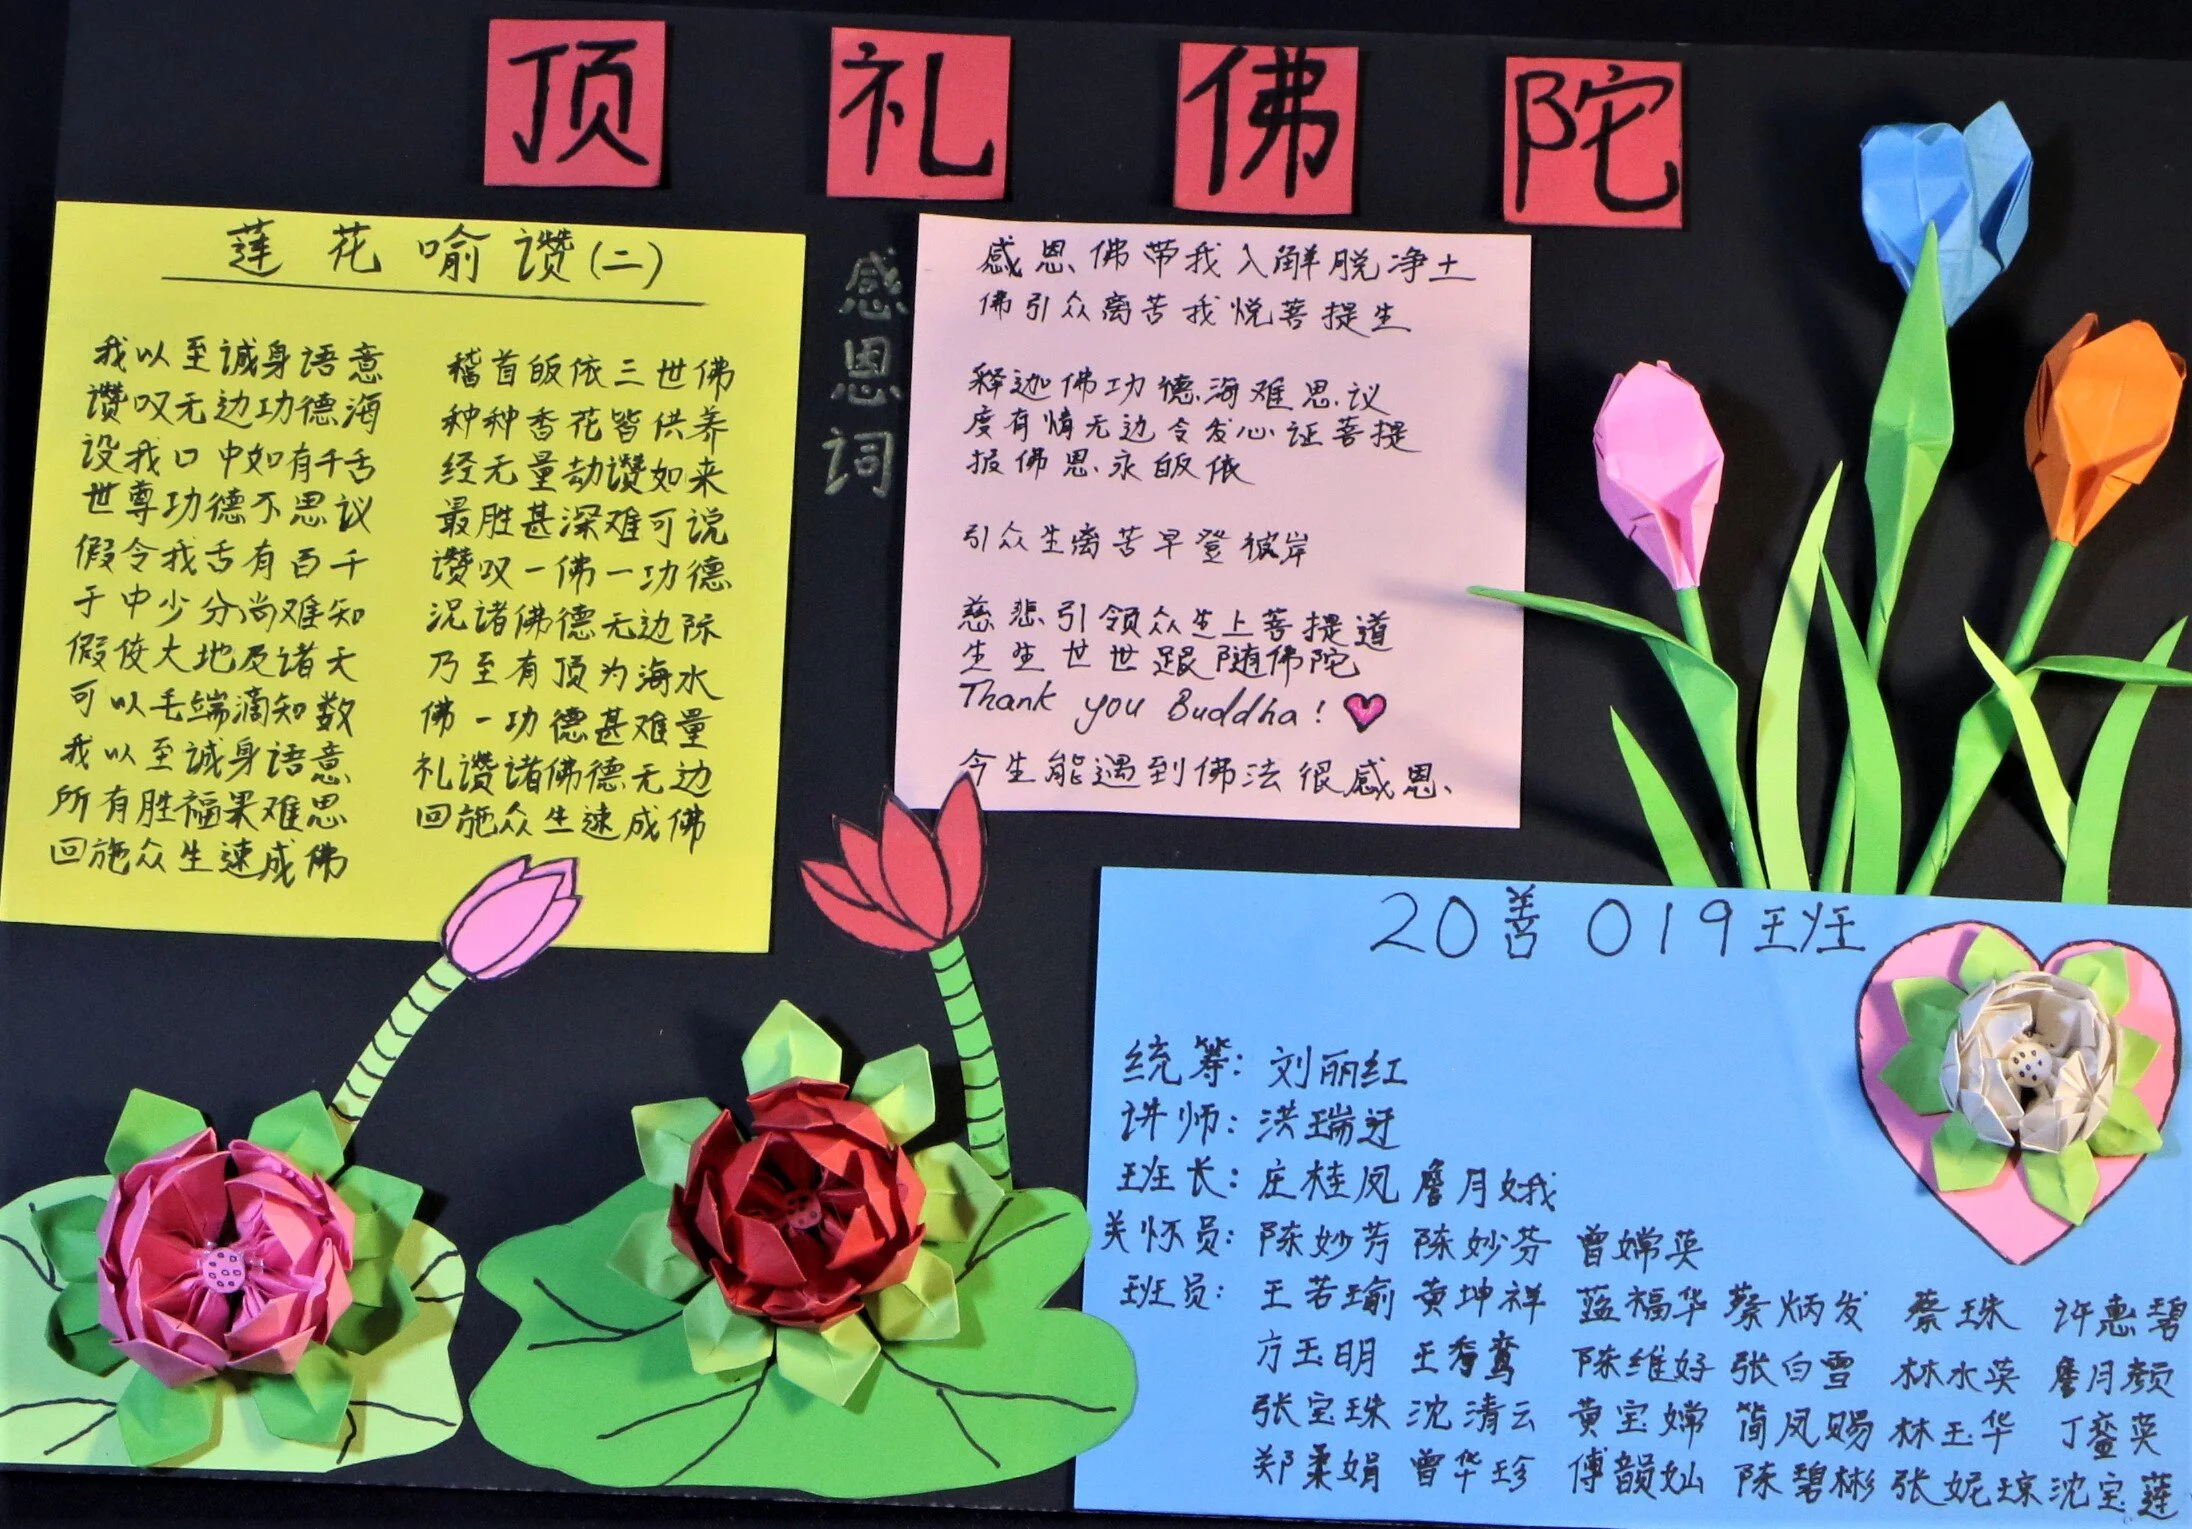 顶礼佛陀
莲花喻讚(二)
我以至诚身语意
讚叹无边功德海
设我口中如有千舌
世尊功德不思议
假令我舌有百千
于中少分尚难知
假使大地及诸天
可以毛端滴知数
我以至诚身语意
所有胜福果难思
回施众生速成佛
稽首皈依三世佛
种种香花皆供养
经无量劫讚如来
最胜甚深难可说
讚叹一佛一功德
况诸佛德无边际
乃至有顶为海水
佛一功德甚难量
礼讚诸佛德无边
回施众生速成佛
感恩词
感恩佛带我入解脱净土
佛引众离苦我悦菩提生
释迦佛功德海难思议
度有情无边令发心证菩提
报佛恩永皈依
引众生离苦早登彼岸
慈悲引领众生上菩提道
生生世世跟随佛陀
Thank you Buddha!
今生能遇到佛法很感恩、
20善019班
统筹: 刘丽红
讲师: 洪瑞迓
班长: 庄桂凤 詹月娥
关怀员: 陈妙芳 陈妙芬 曾嫦英
班员: 王若瑜 黄坤祥 蓝福华 蔡炳发 蔡珠 许惠碧
方玉明 王秀鸾 陈维好 张白雪 林水英 詹月颜
张宝珠 沈清云 黄宝嫦 简凤赐 林玉华 丁銮英
郑柔娟 曾华珍 傅韻灿 陈碧彬 张妮琼 沈宝莲